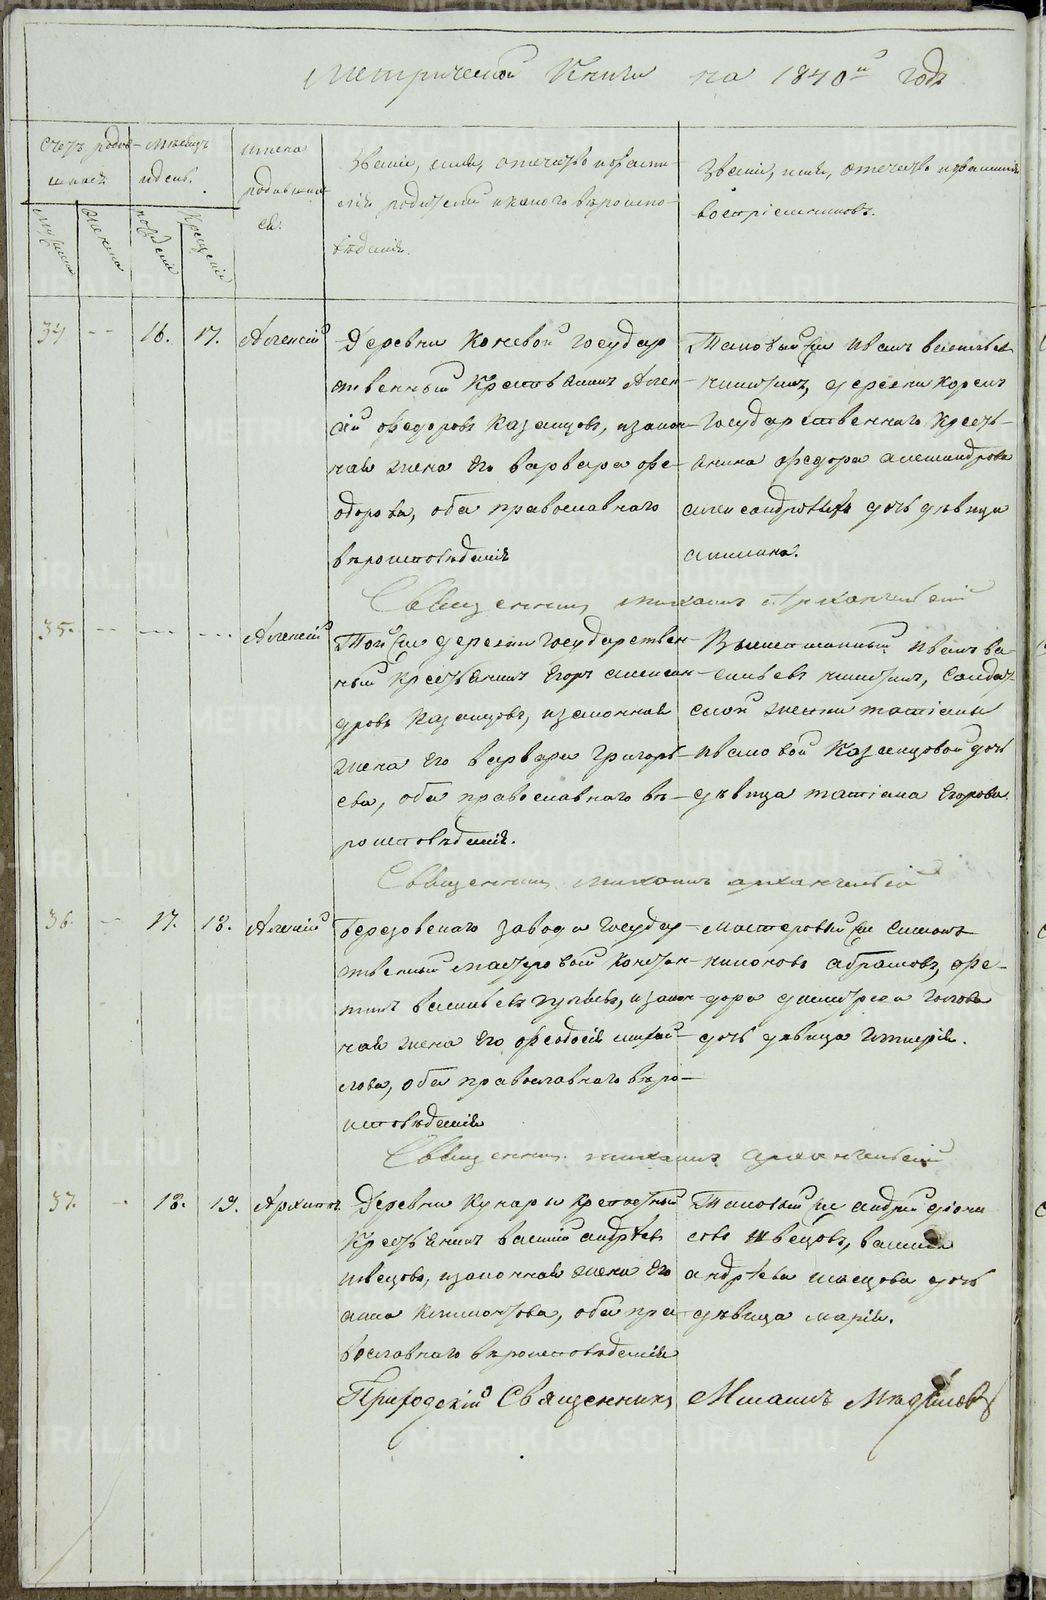 Метрической Книги на 1840й годъ
Счетъ родив- Месяцъ
шихся и день.
Имена
родивших
ся.
Званіе, имя, отечество и фами-
лія родителей и какого вероиспо-
веданія.
Званіе, имя, отечество и фамилія
воспріемниковъ.
Мужеска
женска
рожденія
Крещенія
34 -- 16. 17. Алексей
Деревни Коневой государ
ственный Крестьянинъ Алек
сій Федоровъ Казанцовъ, и закон
ная жена его Варвара Фе-
дорова, оба православнаго
вероисповеданія
Таковый же Иванъ Васильев
Никитинъ, деревни Конев
государственнаго кресть-
янина Федора Александрова
дочь девица
Священникъ Михаилъ Архангельскій
35. -- --- --- Алексей
Той же деревни государствен-
ный крестьянинъ Егоръ Алексан
дровъ Казанцовъ, и законная
жена его Варвара Григорь
ева, оба православнаго ве-
роисповеданія.
Вышеписанный Иванъ Ва-
сильевъ Никитинъ, солдат
ской женки Татіаны
Ивановой Казанцовой дочь
девица Татіана Егорова
Священникъ Михаилъ Архангельскій
36. -- 17. 18. Алексей
Березовскаго завода государ
ственный мастеровой Констан
тинъ Васильевъ, и закон
ная жена его Феодосія Михай
лова, оба православнаго веро-
исповеданія
Мастеровый же Симонъ
Никоновъ Абрамовъ, Фе-
дора Димитріева
дочь девица Гликерія.
Священникъ Михаилъ Архангельскій
37. -- 18. 19. Архипъ
Деревни Кунары крепостный
Крестьянинъ Василій Андреевъ
Швецовъ, и законная жена его
Анна Климонтова, оба пра
вославнаго вероисповеданія
Таковый же Андрей Діони
совъ Швецовъ, Василія
Андреева Швецова дочь
девица Марія.
Приходскій Священникъ Михаилъ